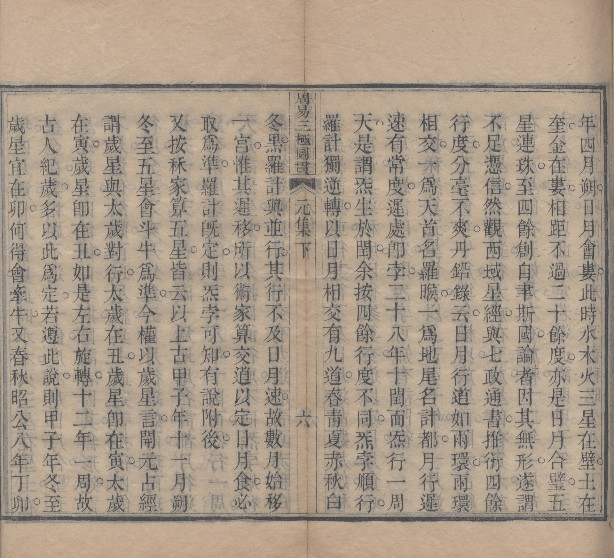 年四月朔日月會婁此時水木火三星在壁土在
奎金在婁相距不過二十餘度亦是日月合璧五
星連珠至四餘創自聿斯國論者因其無形遂謂
不足憑信然觀西域星經與七政通書推衍四餘
行度分毫不爽丹鉛錄云日月行道如兩環兩環
相交一爲天首名羅㬋一爲地尾名計都月行遲
速有常度遲處卽孛二十八年十閏而炁行一周
天是謂炁生於閏余按四餘行度不同炁孛順行
羅計獨逆轉以日月相交有九道春靑夏赤秋白
周易三極圖書
元集下
六
冬黑羅計與並行其行不及日月速故數月始移
一宮惟其遲移所以術家算交道以定日月食必
取為準羅計旣定則炁孛可知有說附後
又按秝家算五星皆云以上古甲子年十一月朔
冬至五星會斗牛爲準今權以歲星言開元占經
謂歲星與太歲對行太歲在丑歲星卽在寅太歲
在寅歲星卽在丑如是左右旋轉十二年一周故
古人紀歲多以此爲定若遵此說則甲子年冬至
歲星宜在卯何得會牽牛又春秋昭公八年丁卯